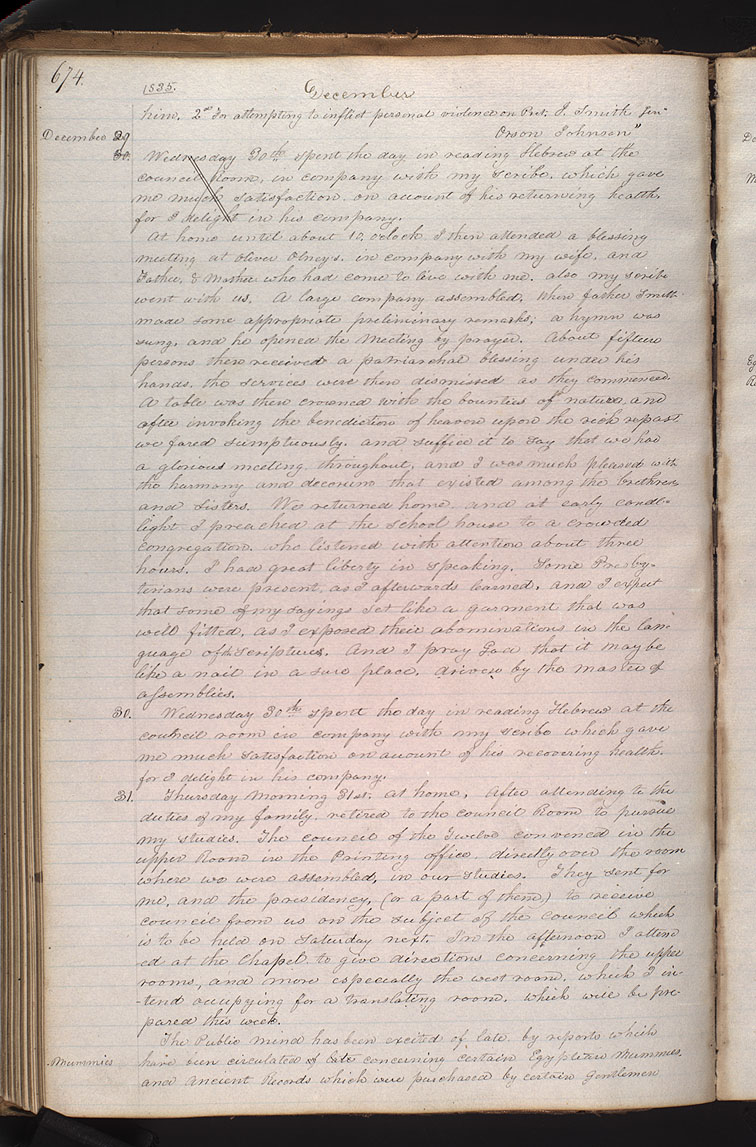 674.
1835.
December
him, 2nd For attempting to inflict personal violence on Prst. J. Smith Jun"
Orson Johnson"
December 29
30. Wednesday 30th Spent the day in reading Hebrew at the
council Room, in company with my Scribe, which gave
me much satisfaction, on account of his returning health,
for I delight in his company.
At home until about 10, oclock I then attended a blessing
meeting at Oliver Olney's. in company with my wife, and
Father, & Mother who had come to live with me. also my scribe
went with us. A large company assembled, When father Smith
made some appropriate preliminary remarks; a hymn was
sung, and he opened the Meeting by prayer. About fifteen
persons then received a patriarchal blessing under his
hands. the services were then dismissed as they commenced.
A table was then crowned with the bounties of nature, and
after invoking the benediction of heaven upon the rich repast
we fared sumptuously. and suffice it to say that we had
a glorious meeting, throughout, and I was much pleased with
the harmony and decorum that existed among the brethren
and Sisters. We returned home and at early candle-
light I preached at the School house to a crowded
congregation, who listened with attention about three
hours. I had great liberty in speaking. Some Presby-
terians were present, as I afterwards learned, and I expect
that some of my sayings set like a garment that was
well fitted, as I exposed their abominations in the lan-
guage of the scriptures. And I pray God that it may be
like a nail in a sure place, driven by the master of
assemblies.
30. Wednesday 30th Spent the day in reading Hebrew at the
council room in company with my scribe which gave
me much satisfaction on account of his recovering health.
for I delight in his company.
31. Thursday Morning 31st. at home. After attending to the
duties of my family, retired to the council Room to pursue
my studies. The council of the Twelve convened in the
upper Room in the Printing Office, directly over the room
where we were assembled, in our studies. They sent for
me, and the presidency, (or a part of them,) to receive
council from us on the subject of the council which
is to be held on Saturday next. In the afternoon I attend
-ed at the Chapel to give directions concerning the upper
rooms, and more especially the west room, which I in-
-tend occupying for a translating room, which will be pre-
pared this week.
The Public mind has been excited of late, by reports which
Mummies have been circulated of late concerning certain Egyptian Mummies
and ancient Records which were purchased by certain gentlemen